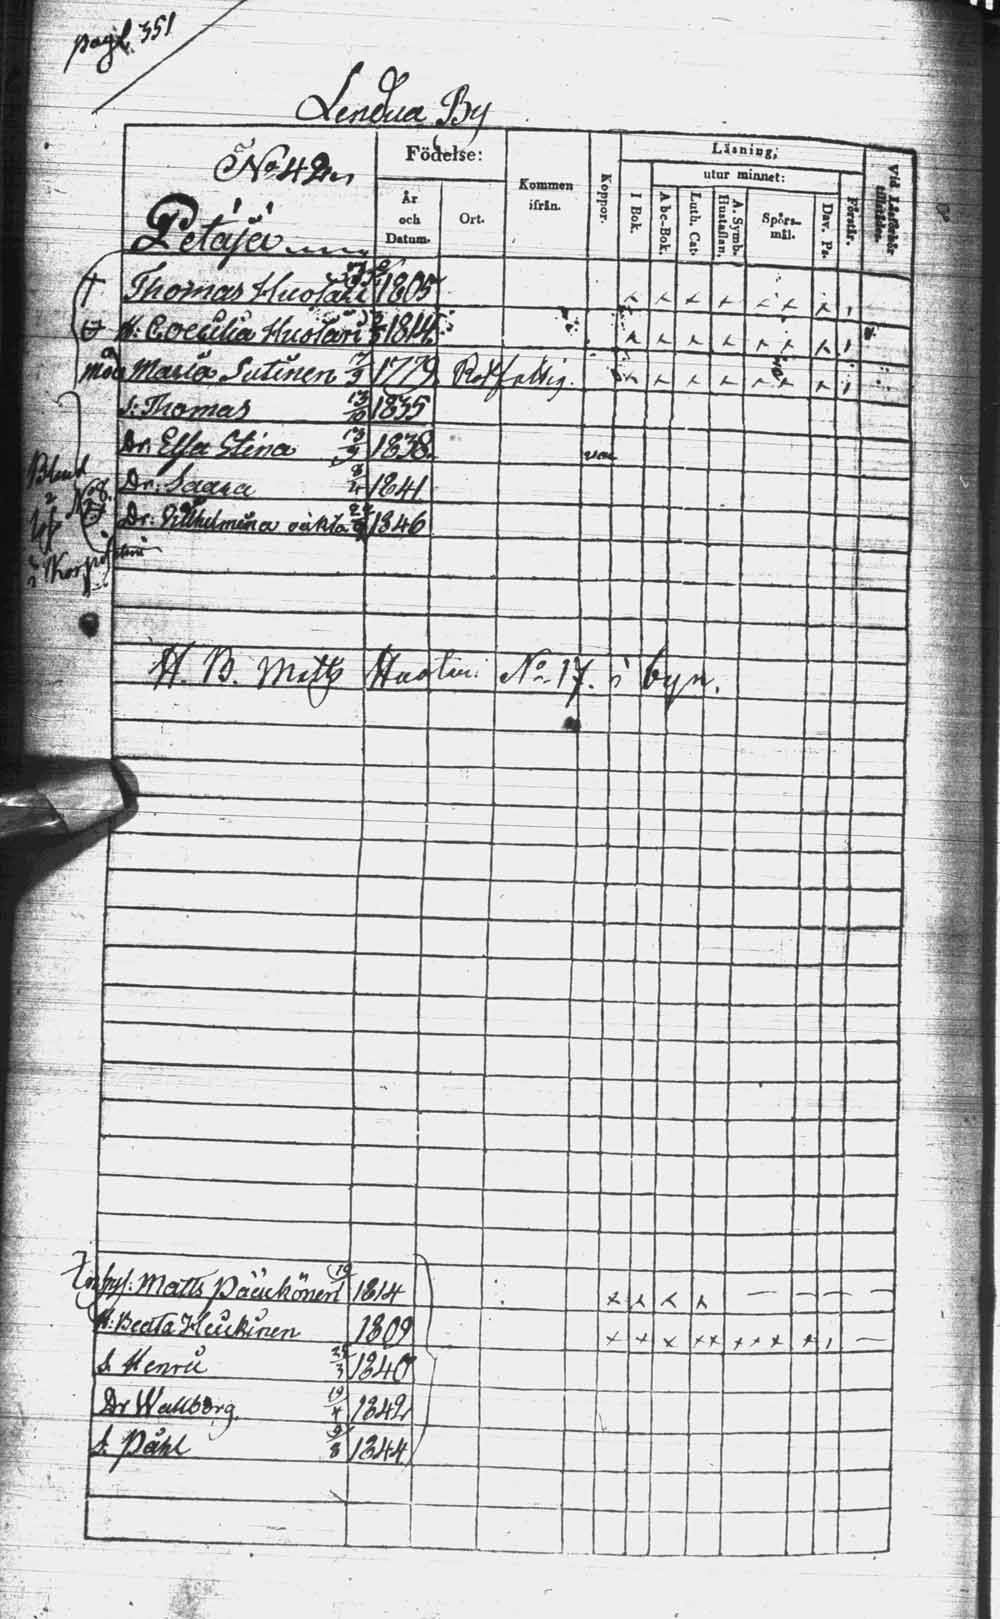 pag. 351
Lendua By
No 42
Petäjä
Födelse:
År och Datum.
Ort.
Kommen ifrån.
Koppor.
Läsning;
utur minnet:
I Bok.
A b c-Bok.
Luth. Cat.
A. Symb. Hustaflan.
Spörsmål.
Dav. Ps.
Förstår.
Vid Läsförhör tillstädes.
† Thomas Huotari 1805
H: Coecilia Huotari 1814
mod Maria Sutinen 1779
S: Thomas 13/10 1835
Dr. Elsa Stina 1838 vac
Dr: Saara 8/4 1841
Dr: Wilhelmina oäkta 1846
H. B. Matts Huotari No 17. i byn.
Inhys: Matts Pääkkönen 1814
H: Beata Heikkinen 1809
S. Henric 1840
Dr Wallborg 19/4 1842
S. Påhl 9/8 1844